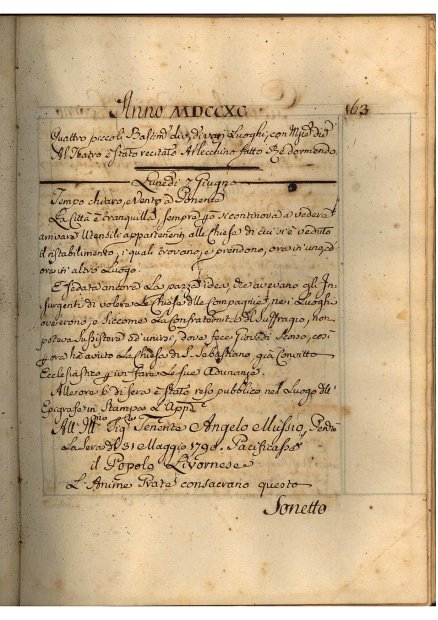 Anno MDCCXC
163
Quattro piccoli Bastim.ti div.si di varj Luoghi, con
Al Teatro è stato recitato Arlecchino fatto Rè dormendo
Lunedi 7 Giugno
Tempo chiaro, e Vento a Ponente
La Città è tranquilla, sempre però si continova a vedere
arrivare Utensili appartenenti alle Chiese di cui si è veduto
il ristabilimento, i quali trovano, e prendono, ora in uno, ed
ora in altro Luogo.
È sedata ancora La pazza idea che avevano gl'In=
surgenti di volere Le Chiese delle Compagnie, nei Luoghi
ove erono, e siccome La Confraternita del Suffragio, non
poteva Sussistere ad unirsi, dove fece Giovedi Scorso, così
ora hà avuto La Chiesa di S. Sebastiano, già Convitto
Ecclesiastico per ivi fare Le sue Adunanze
Alle ore 6 di sera è stato reso pubblico nel Luogo dell'
Epigrafe in Stampa L'App.e
All' Ill.mo Sig.re Tenente Angelo Mussio,
La Sera del 31 Maggio 1790.
il Popolo Livornese
L'Anime Grate consacrano questo
Sonetto